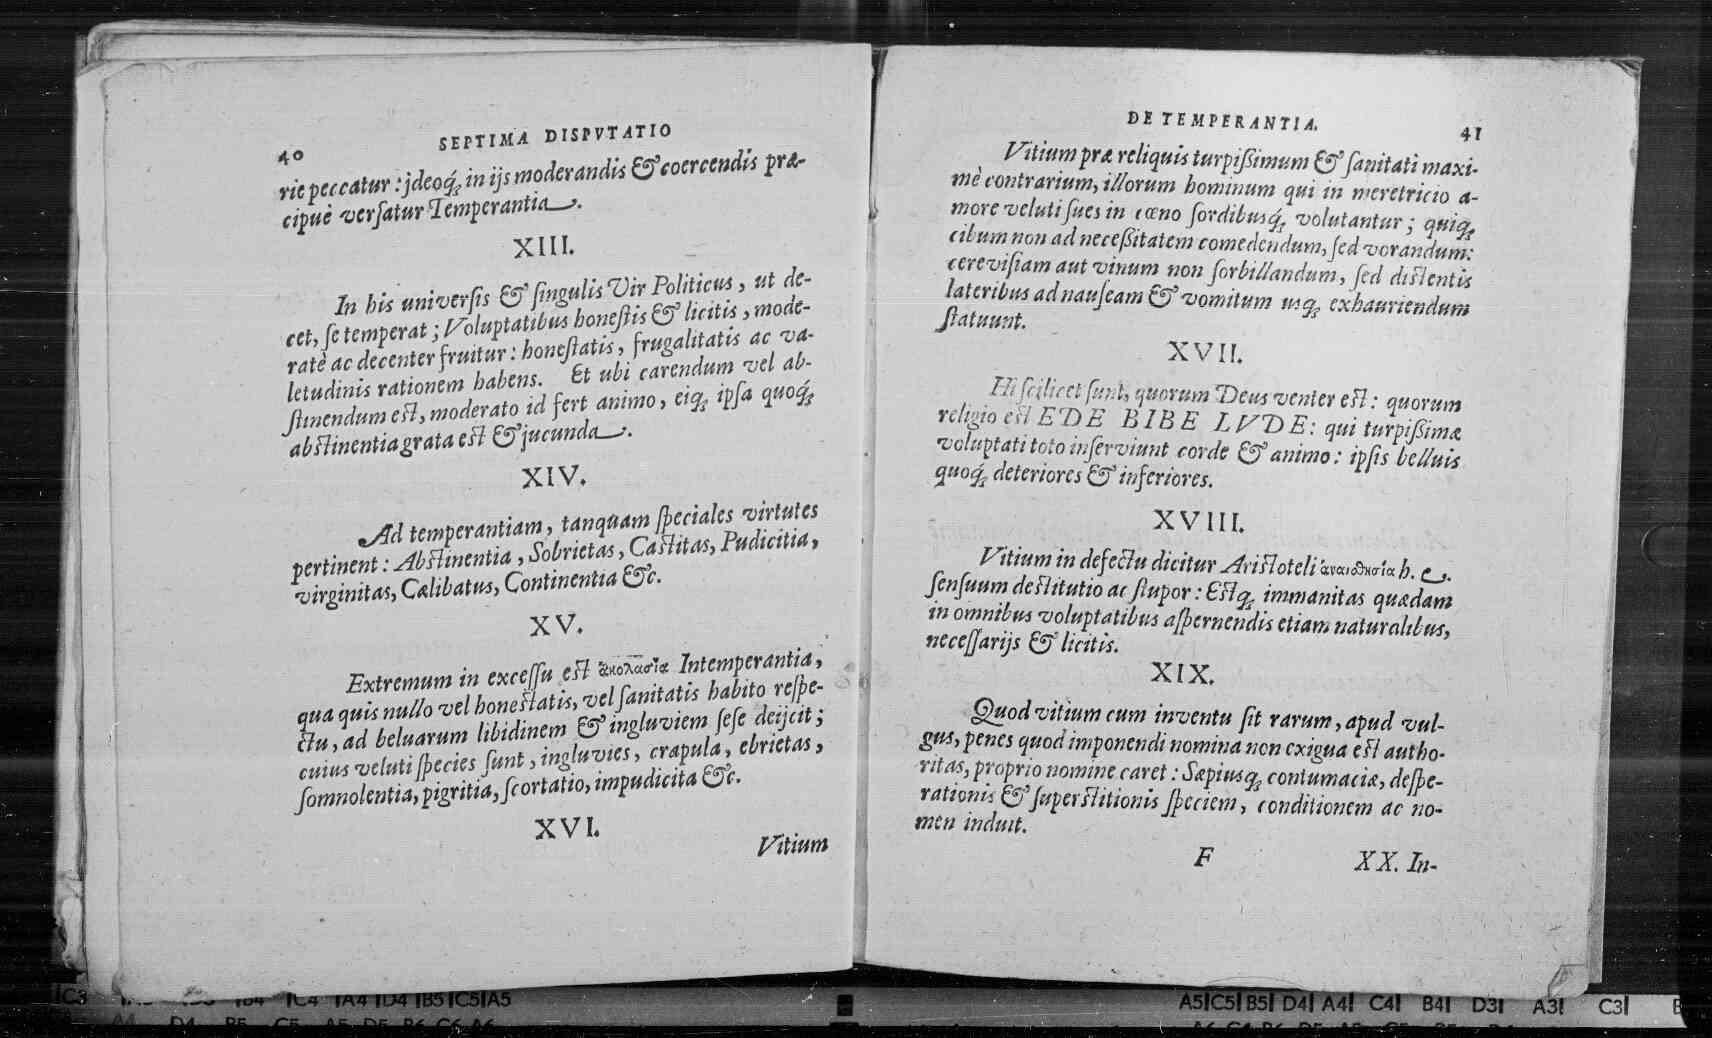 40
SEPTIMA DISPVTATIO
rie peccatur: jdeoq́; in ijs moderandis & coercendis præ-
cipuè verſatur Temperantia.
XIII.
In his univerſis & ſingulis Vir Politicus, ut de-
cet, ſe temperat; Voluptatibus honeſtis & licitis, mode-
ratè ac decenter fruitur: honeſtatis, frugalitatis ac va-
letudinis rationem habens. Et ubi carendum vel ab-
ſtinendum est, moderato id fert animo, eiq; ipſa quoq́;
abstinentia grata est & jucunda.
XIV.
Ad temperantiam, tanquam ſpeciales virtutes
pertinent: Abstinentia, Sobrietas, Castitas, Pudicitia,
virginitas, Cælibatus, Continentia &c.
XV.
Extremum in exceſſu est ἀκολασία Intemperantia,
qua quis nullo vel honestatis, vel ſanitatis habito reſpe-
ctu, ad beluarum libidinem & ingluviem ſeſe deijcit;
cuius veluti ſpecies ſunt, ingluvies, crapula, ebrietas,
ſomnolentia, pigritia, ſcortatio, impudicita &c.
XVI.
Vitium
DE TEMPERANTIA.
41
Vitium præ reliquis turpißimum & ſanitati maxi-
mè contrarium, illorum hominum qui in meretricio a-
more veluti ſues in cœno ſordibusq́; volutantur; quiq;
cibum non ad neceßitatem comedendum, ſed vorandum:
cereviſiam aut vinum non ſorbillandum, ſed distentis
lateribus ad nauſeam & vomitum usq; exhauriendum
ſtatuunt.
XVII.
Hi ſcilicet ſunt, quorum Deus venter est: quorum
religio est EDE BIBE LVDE: qui turpißimæ
voluptati toto inſerviunt corde & animo: ipſis belluis
quoq́; deteriores & inferiores.
XVIII.
Vitium in defectu dicitur Aristoteli ἀναισθησία h. e.
ſenſuum destitutio ac ſtupor: Estq; immanitas quædam
in omnibus voluptatibus aſpernendis etiam naturalibus,
neceſſarijs & licitis.
XIX.
Quod vitium cum inventu ſit rarum, apud vul-
gus, penes quod imponendi nomina non exigua est autho-
ritas, proprio nomine caret: Sæpiusq; contumaciæ, deſpe-
rationis & ſuperstitionis ſpeciem, conditionem ac no-
men induit.
F
XX. In-
C3 B4 C4 A4 D4 B5 C5 A5
A5 C5 B5 D4 A4 C4 B4 D3 A3 C3